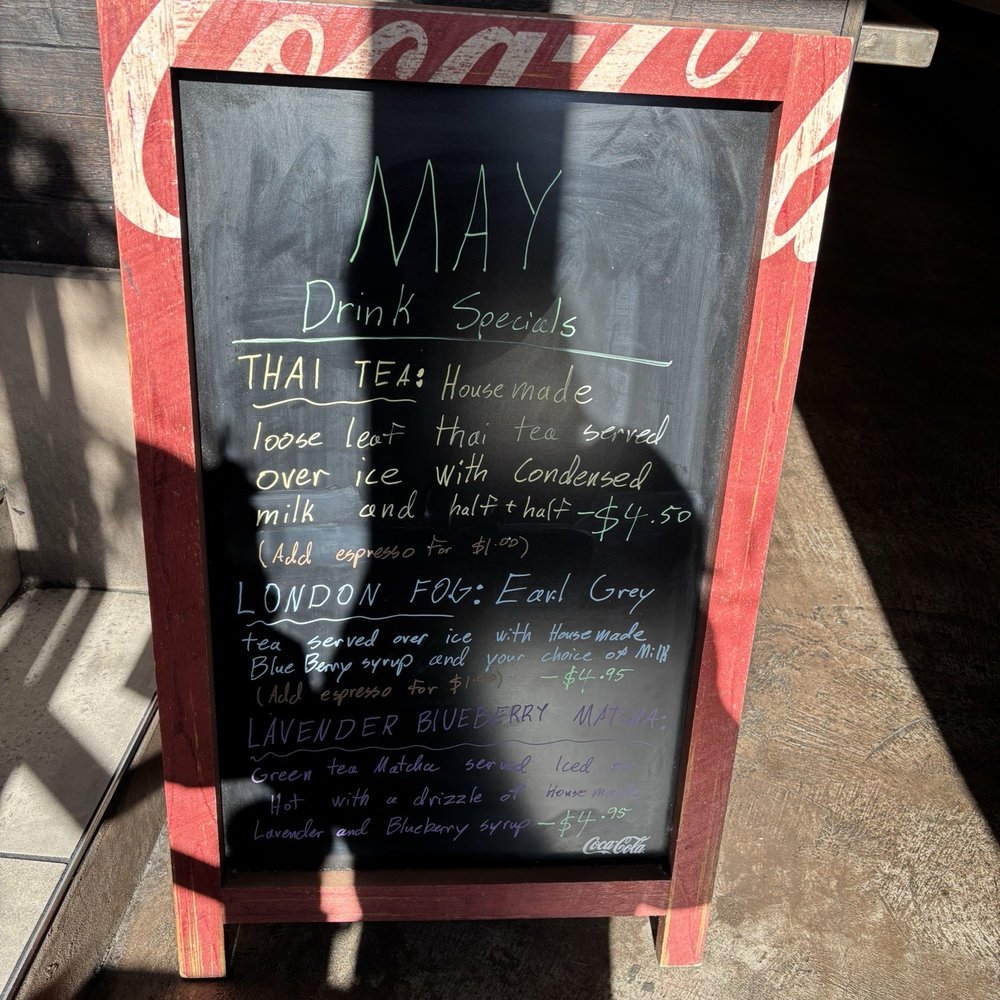 Coca-Cola
MAY
Drink Specials
THAI TEA: Housemade
loose leaf thai tea served
over ice with Condensed
milk and half + half - $4.50
(Add espresso for $1.00)
LONDON FOG: Earl Grey
tea served over ice with Housemade
Blue Berry syrup and your choice of Milk
(Add espresso for $1.00) - $4.95
LAVENDER BLUEBERRY MATCHA:
Green tea Matcha served Iced or
Hot with a drizzle of Housemade
Lavender and Blueberry syrup - $4.95
Coca-Cola